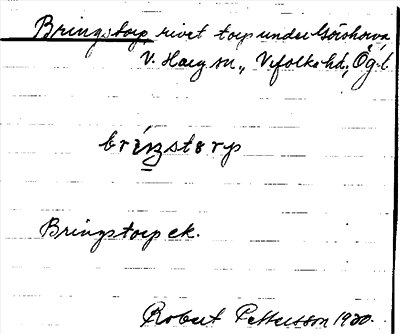 Bringstorp rivet torp under Göishorva
V. Harg sn., Vifolka hd., Ög. l.
briŋstərp
Bringstorp ek.
Robert Pettersson 1930.